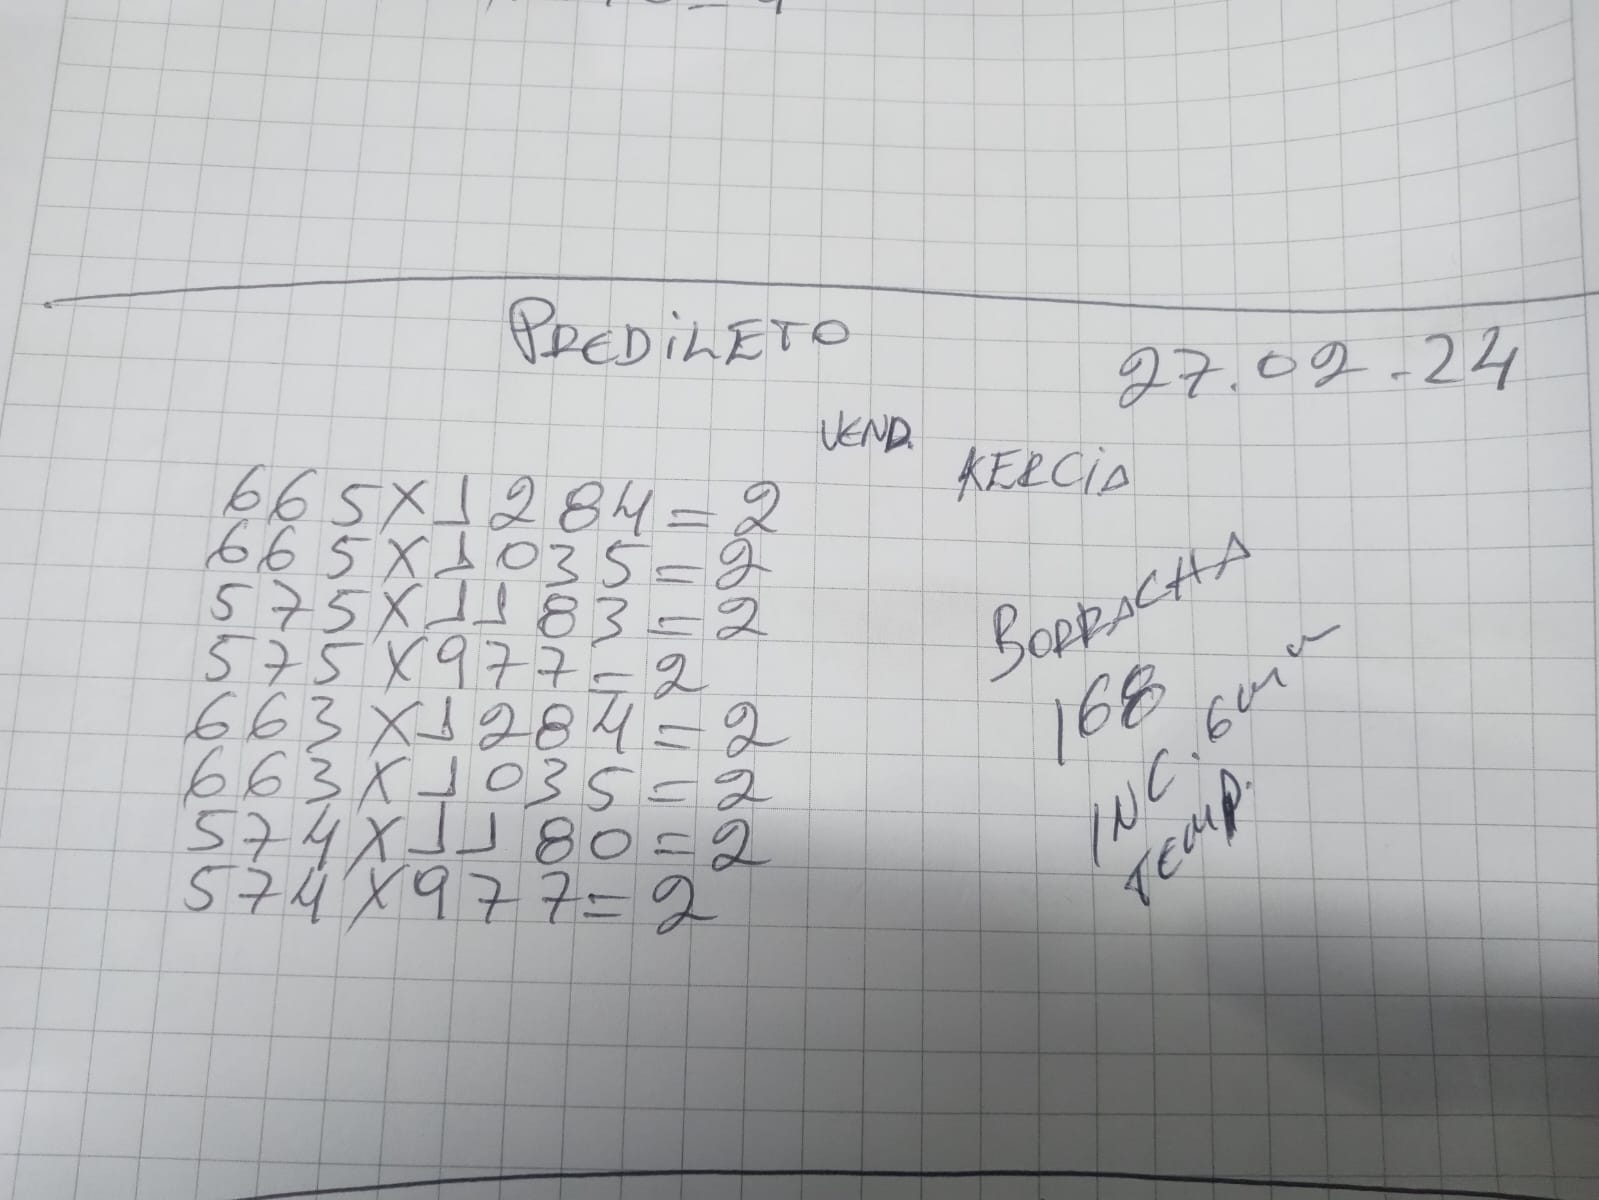 PREDiLETO
27.02.24
VEND.
KERCiA
665X1284=2
665X1035=2
575X1183=2
575X977=2
663X1284=2
663X1035=2
574X1180=2
574X977=2
BORRACHA
168
INC. 6mm
TEMP.